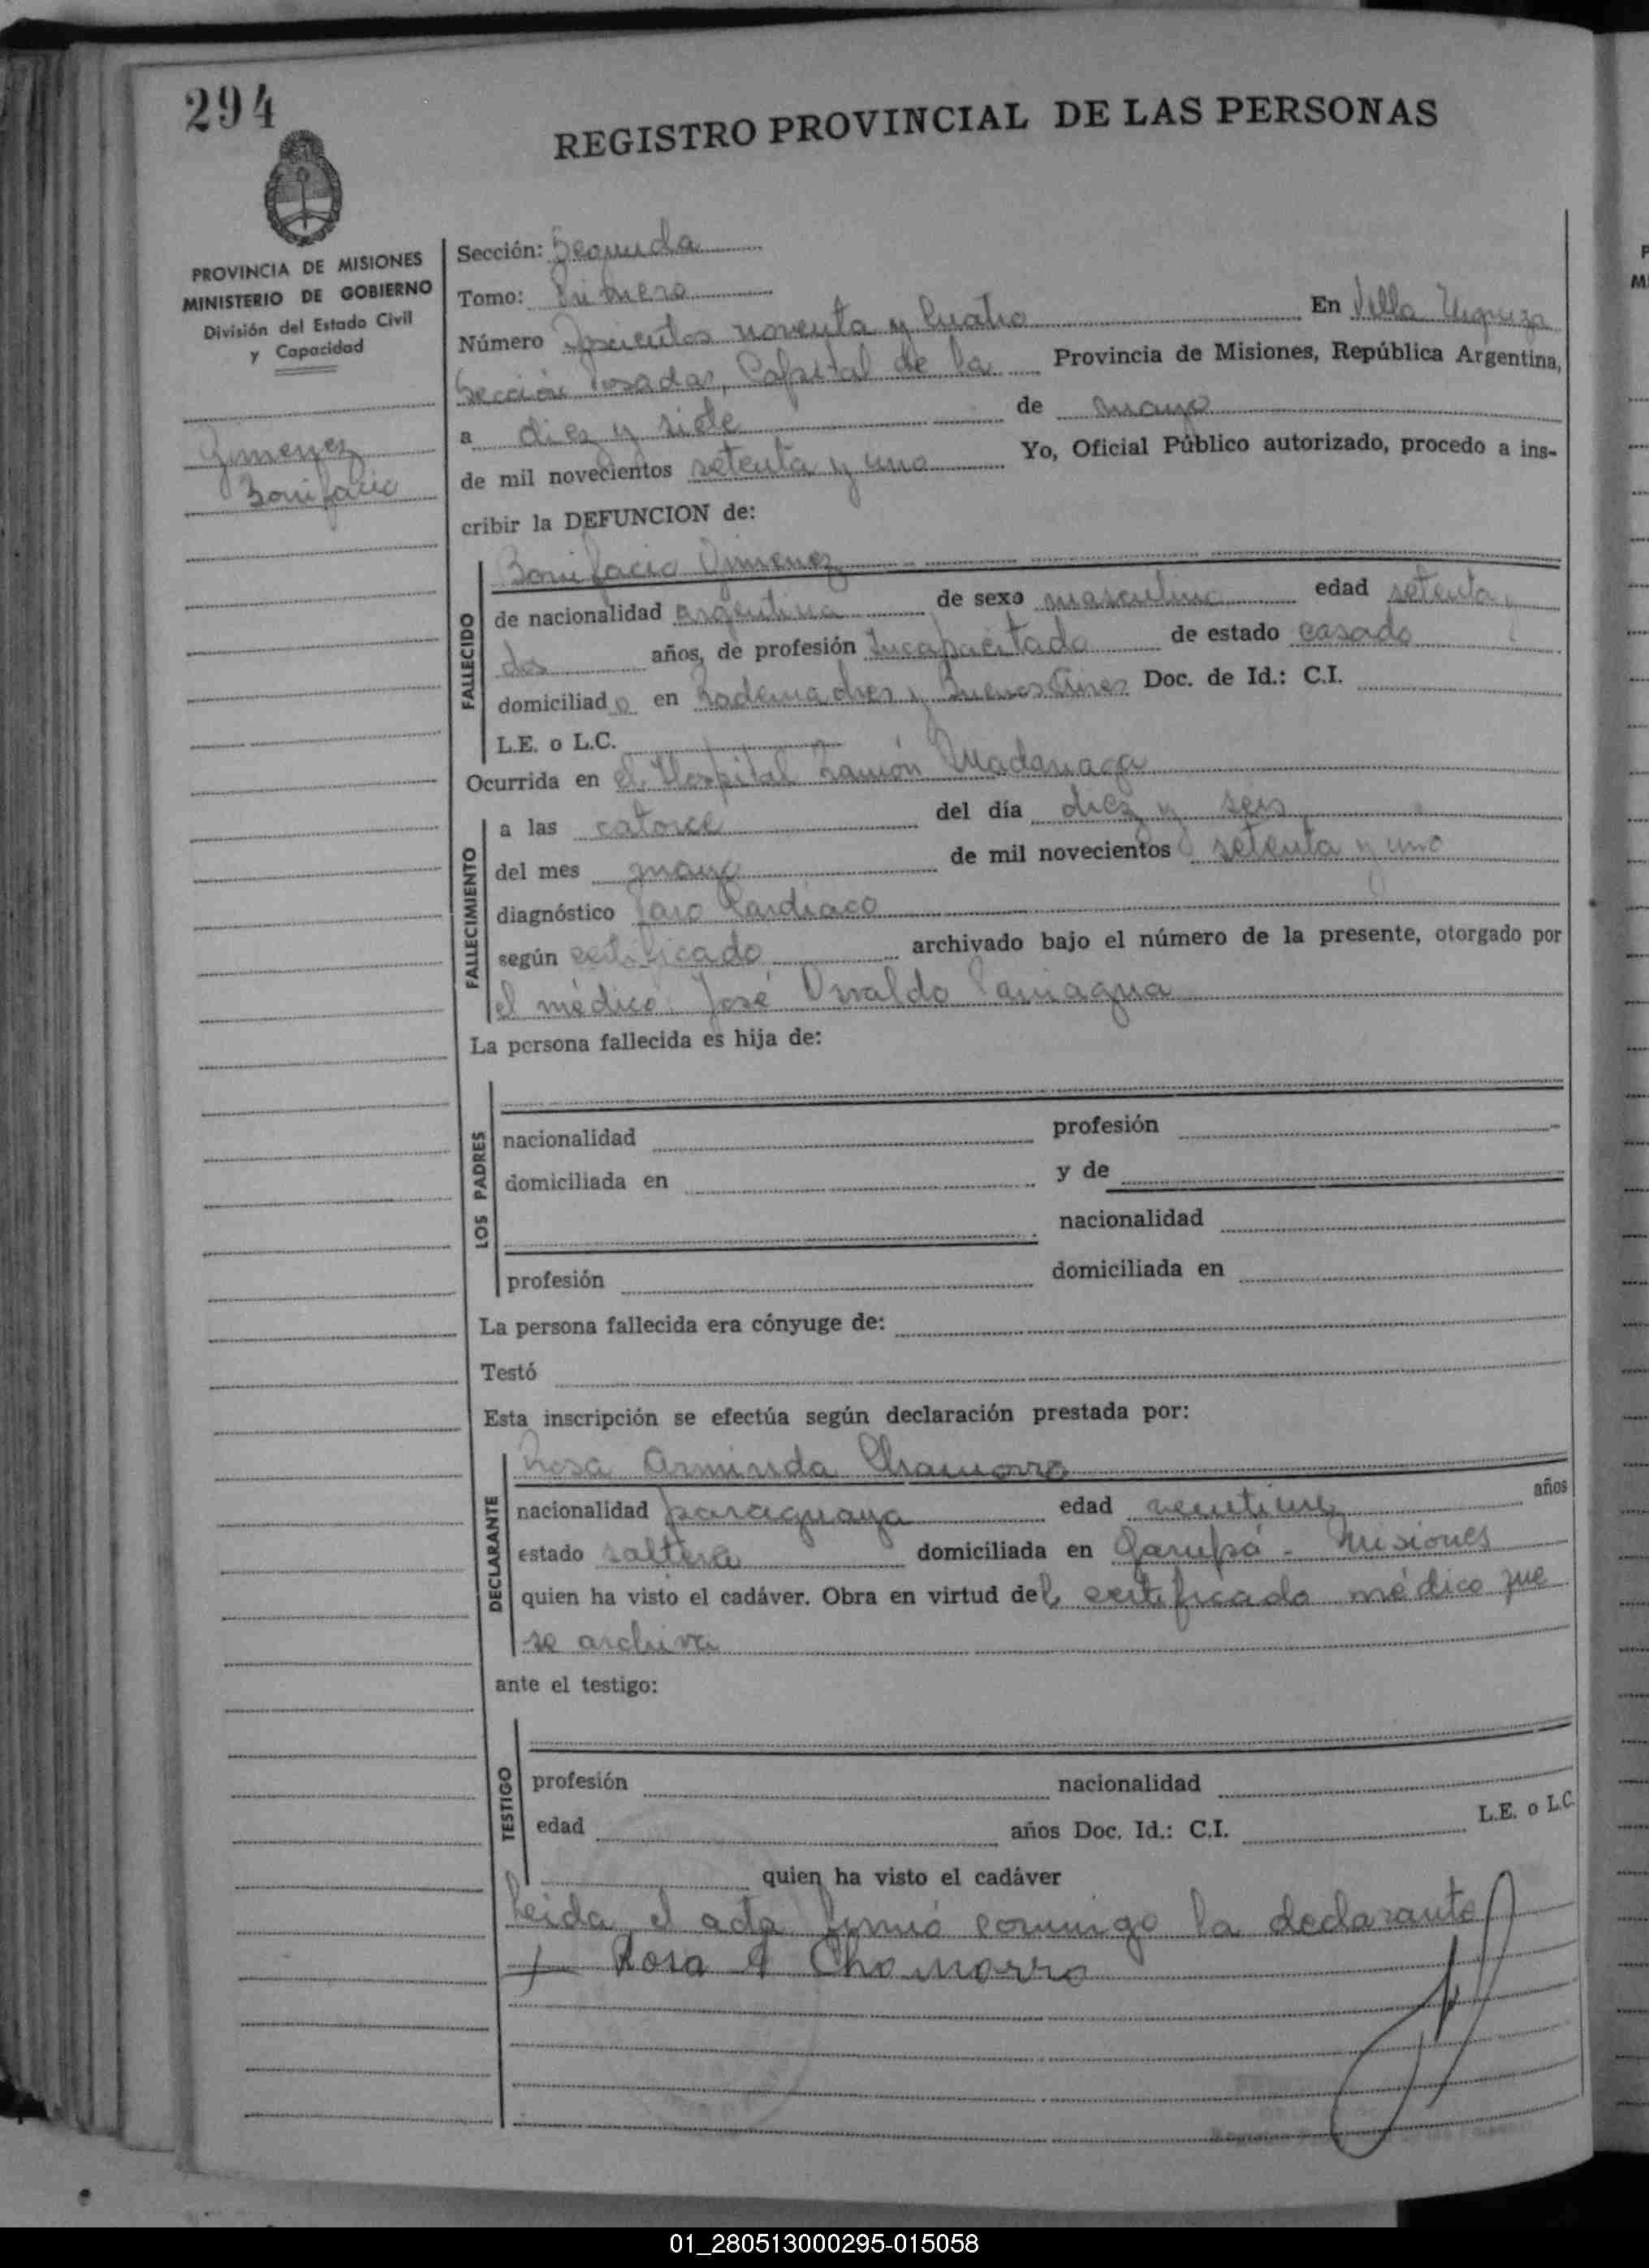 294
REGISTRO PROVINCIAL DE LAS PERSONAS
PROVINCIA DE MISIONES
MINISTERIO DE GOBIERNO
División del Estado Civil
y Capacidad
Gimenez
Bonifacio
Sección: Segunda
Tomo: Primero
Número Doscientos noventa y cuatro En Villa Urquiza
Sección Posadas, Capital de la Provincia de Misiones, República Argentina,
a diez y siete de mayo
de mil novecientos setenta y uno Yo, Oficial Público autorizado, procedo a ins-
cribir la DEFUNCION de:
FALLECIDO
Bonifacio Gimenez
de nacionalidad argentina de sexo masculino edad setenta y
dos años, de profesión Incapacitado de estado casado
domiciliado en Rademacher y Buenos Aires Doc. de Id.: C.I.
L.E. o L.C.
Ocurrida en el Hospital Ramón Madariaga
FALLECIMIENTO
a las catorce del día diez y seis
del mes mayo de mil novecientos setenta y uno
diagnóstico Paro Cardíaco
según certificado archivado bajo el número de la presente, otorgado por
el médico José Osvaldo Paniagua
La persona fallecida es hija de:
LOS PADRES
nacionalidad profesión
domiciliada en y de
nacionalidad
profesión domiciliada en
La persona fallecida era cónyuge de:
Testó
Esta inscripción se efectúa según declaración prestada por:
DECLARANTE
Rosa Arminda Chamorro
nacionalidad paraguaya edad años
estado soltera domiciliada en Garupá - Misiones
quien ha visto el cadáver. Obra en virtud del certificado médico que
se archiva
ante el testigo:
TESTIGO
profesión nacionalidad
edad años Doc. Id.: C.I. L.E. o L.C.
quien ha visto el cadáver
Leida el acta firmó conmigo la declarante
Rosa A Chamorro
01_280513000295-015058